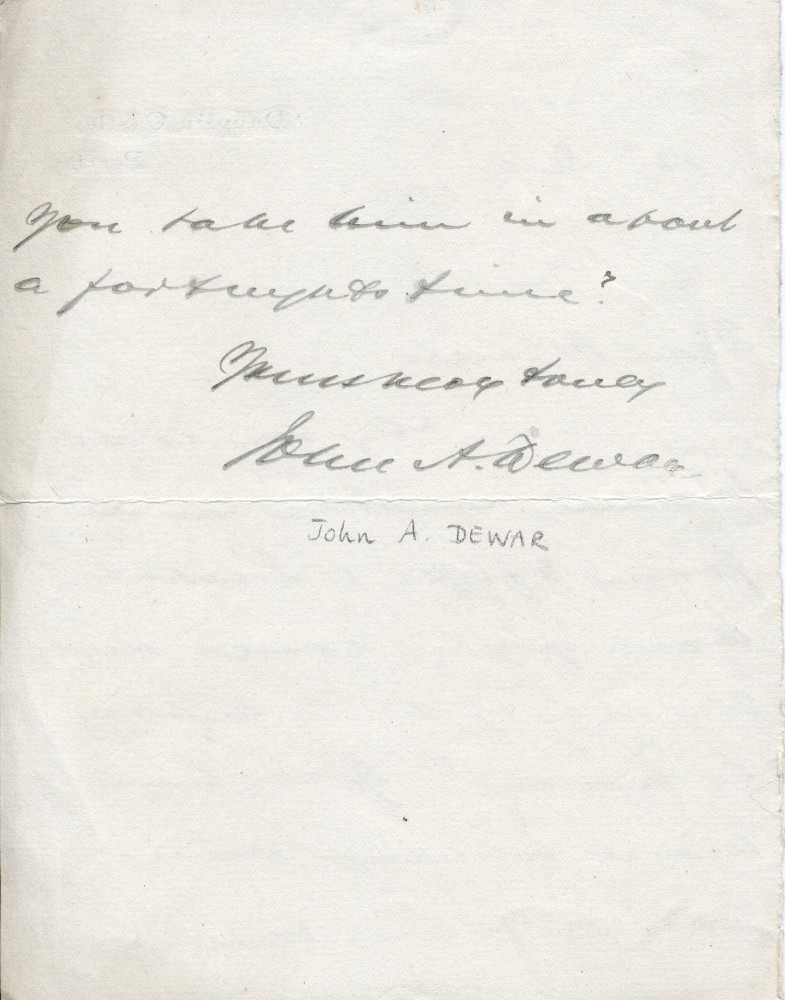 you take him in about
a fortnights time?
Yours very truly
John A. Dewar
John A. DEWAR